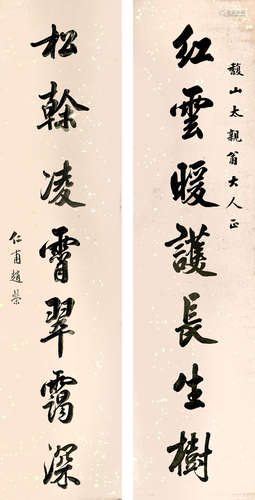 馥山太親翁大人正
紅雲暖護長生樹
松榦凌霄翠靄深
仁甫趙榮